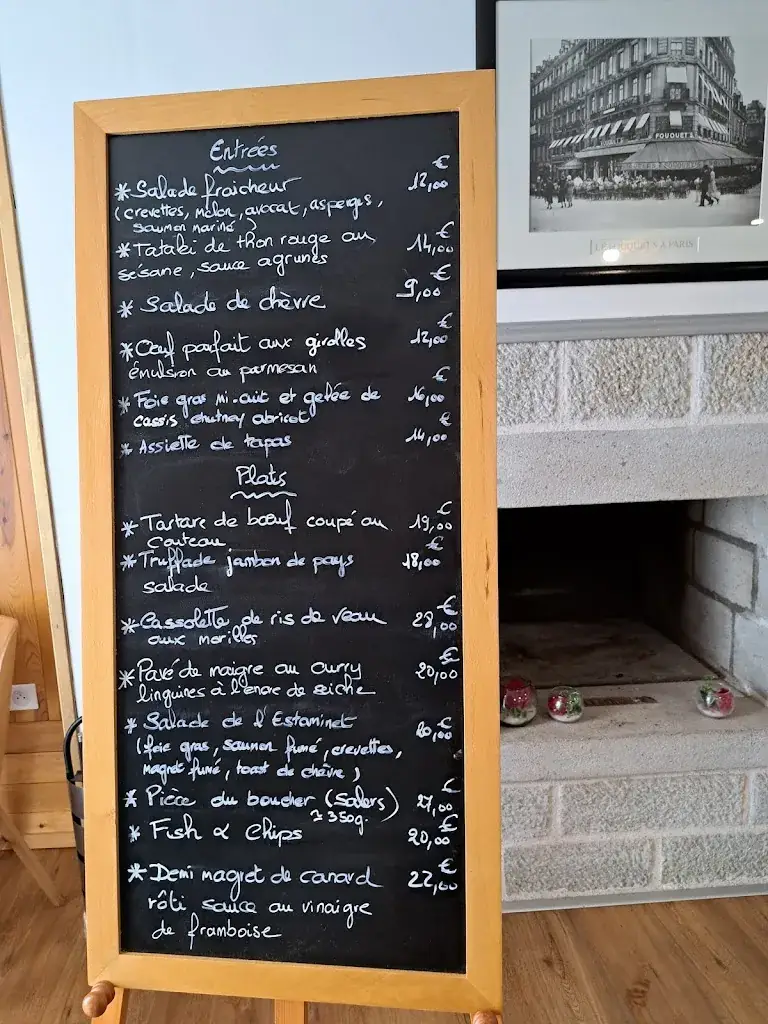 Entrées
* Salade fraicheur 12,00 €
(crevettes, melon, avocat, asperges,
saumon mariné)
* Tataki de thon rouge au 14,00 €
sésane, sauce agrumes
* Salade de chèvre 9,00 €
* Œuf parfait aux girolles 12,00 €
émulsion au parmesan
* Foie gras mi-cuit et gelée de 16,00 €
cassis chutney abricot
* Assiette de tapas 14,00 €
Plats
* Tartare de bœuf coupé au 19,00 €
couteau
* Truffade jambon de pays 18,00 €
salade
* Cassolette de ris de veau 28,00 €
aux morilles
* Pavé de maigre au curry 20,00 €
linguines à l'encre de seiche
* Salade de l'Estaminet 20,00 €
(foie gras, saumon fumé, crevettes,
magret fumé, toast de chèvre)
* Pièce du boucher (Salers) 27,00 €
≈ 350g.
* Fish & Chips 20,00 €
* Demi magret de canard 22,00 €
rôti sauce au vinaigre
de framboise
FOUQUET'S
LE FOUQUET'S A PARIS